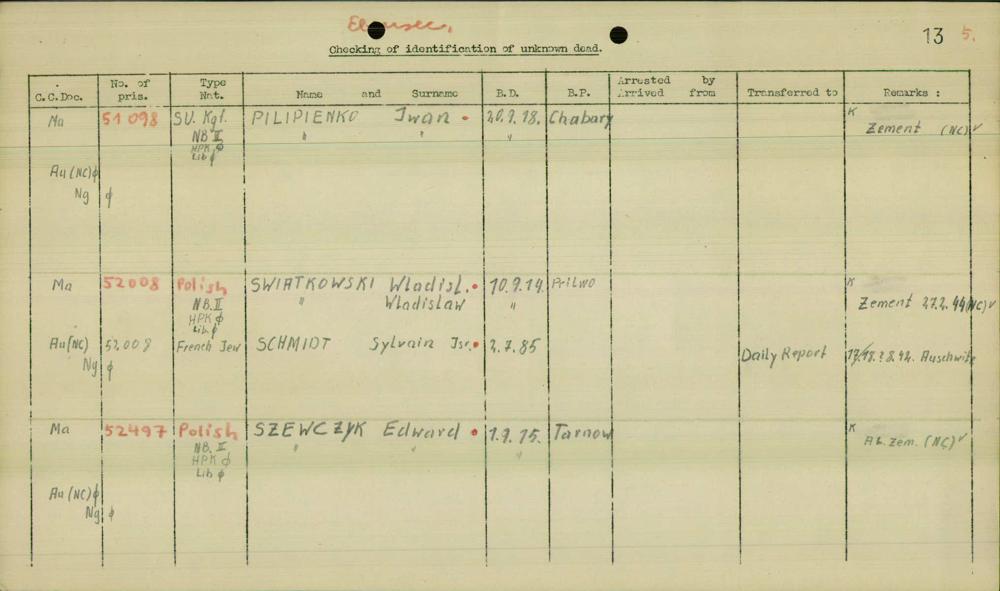 Ebensee.
13 5.
Checking of identification of unknown dead.
C.C.Doc. No. of pris. Type Nat. Name and Surname B.D. B.P. Arrested by Arrived from Transferred to Remarks :
Ma 51 098 SU. Kgf. PILIPIENKO Iwan 20.9.18. Chabary K
NB II " " " Zement (NC) ✓
HPK ϕ
Lib ϕ
Au (NC) ϕ
Ng ϕ
Ma 52008 Polish SWIATKOWSKI Wladisl. 10.9.14. Prilwo K
NB. II " Wladislaw " Zement 27.2.44 (NC) ✓
HPK ϕ
Lib. ϕ
Au (NC) 52.008 French Jew SCHMIDT Sylvain Isr. 2.7.85 Daily Report Auschwitz
Ng ϕ
Ma 52497 Polish SZEWCZYK Edward 1.9.15. Tarnow K
NB. II " " " AL. Zem. (NC) ✓
HPK ϕ
Lib ϕ
Au (NC) ϕ
Ng ϕ